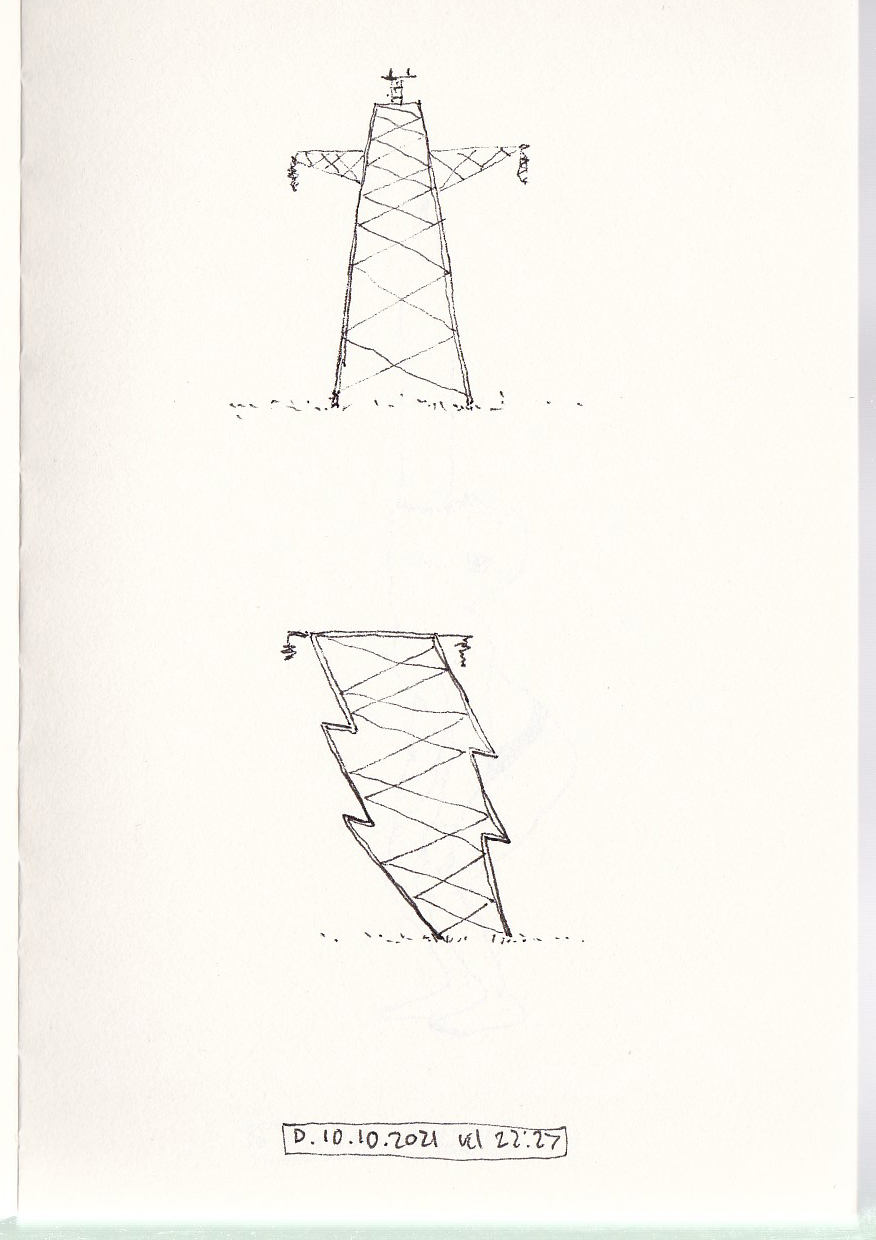 D. 10.10.2021 kl 22:27